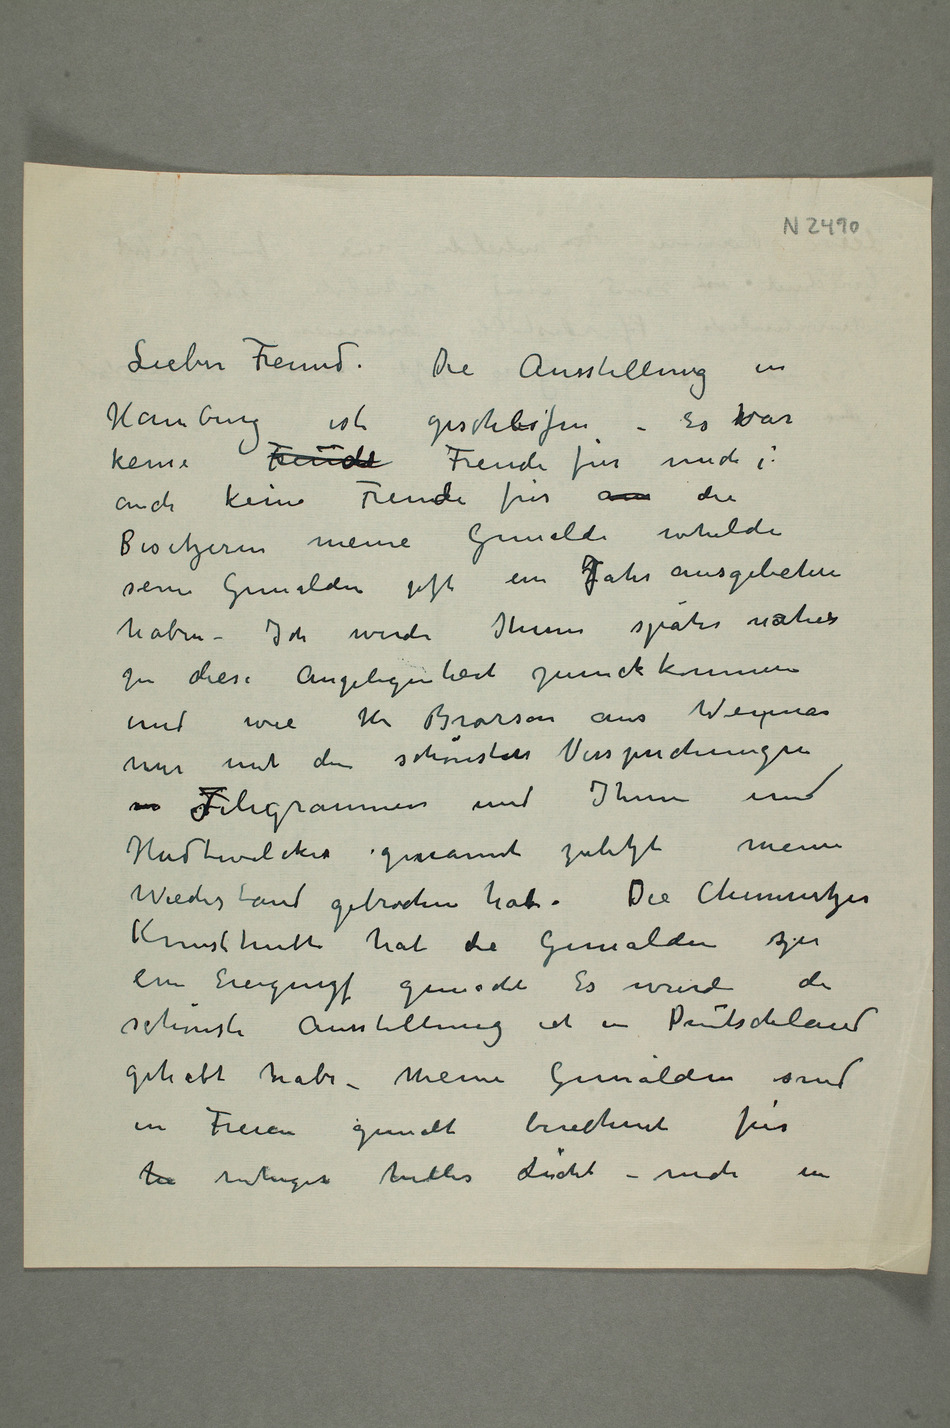 N 2490
Lieber Freund. Die Ausstellung in
Hamburg ist geschlossen – Es war
keine Freude Freude für mich;
auch keine Freude für die
Besitzeren meine Gemälde
seine Gemälden oft ein Jahr ausgebeten
haben – Ich werde Ihnen später näher
zu diese Angelegenheit zurückkommen
und wie Hr Brorson aus Weimar
mir mit den schönsten Versprechungen
Telegrammen und Ihnen und
Hudtwalcker genannt zuletzt meine
Wiederstand gebrochen hat. Die Chemnitzer
Kunsthutte hat die Gemälden zu
ein Ereignis gemacht Es wurde die
schönste Ausstellung ich in Deutschland
gehabt habe – Meine Gemälden sind
in Freien gemalt berechnet für
ruhiges helles Licht – nicht in